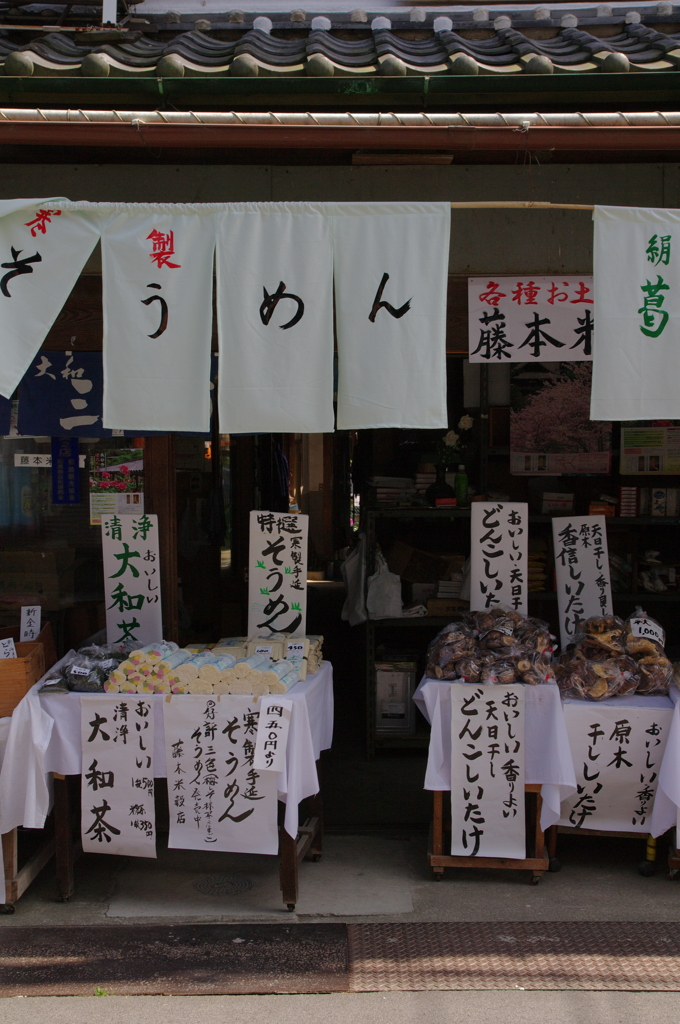 製
そうめん
絹
葛
各種お土
藤本米
大和
三
藤本米
清浄
おいしい
大和茶
特選
寒製手造
そうめん
おいしい・天日干
どんこしいた
天日干し・香り
原木
香信しいたけ
新金時
450
1,000
おいしい
清浄
大和茶
四五〇円より
寒製手造
そうめん
好評三色
そうめん
藤本米穀店
おいしい香りよい
天日干し
どんこしいたけ
おいしい香り
原木
干ししいたけ